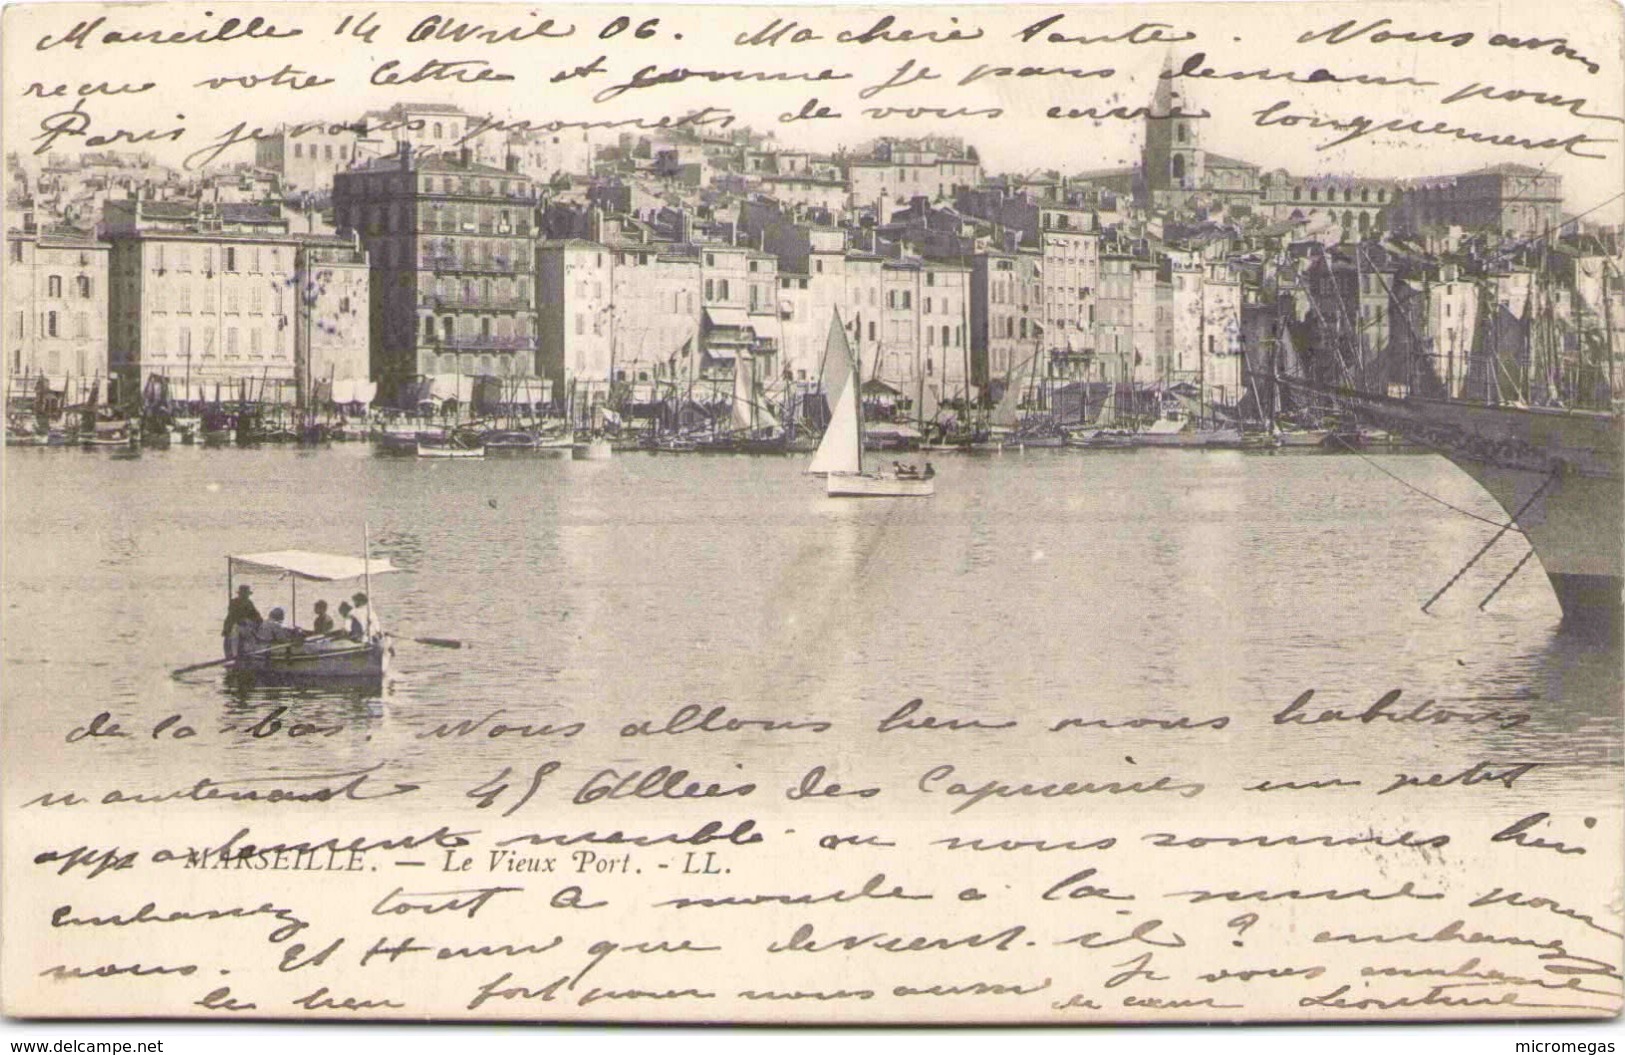 Marseille 14 Avril 06. Ma chere tante. Nous avons
reçu votre lettre et comme je pars demain pour
Paris je vous promets de vous ecrire longuement
de la-bas. Nous allons bien nous habitons
maintenant 45 Allées des Capucines un petit
appartement meublé ou nous sommes bien
MARSEILLE. — Le Vieux Port. - LL.
embrassez tout le monde a la ronde pour
nous. Et Henri que devient-il ? embrassez
le bien fort pour nous aussi Je vous embrasse
de cœur Léontine
www.delcampe.net
micromegas